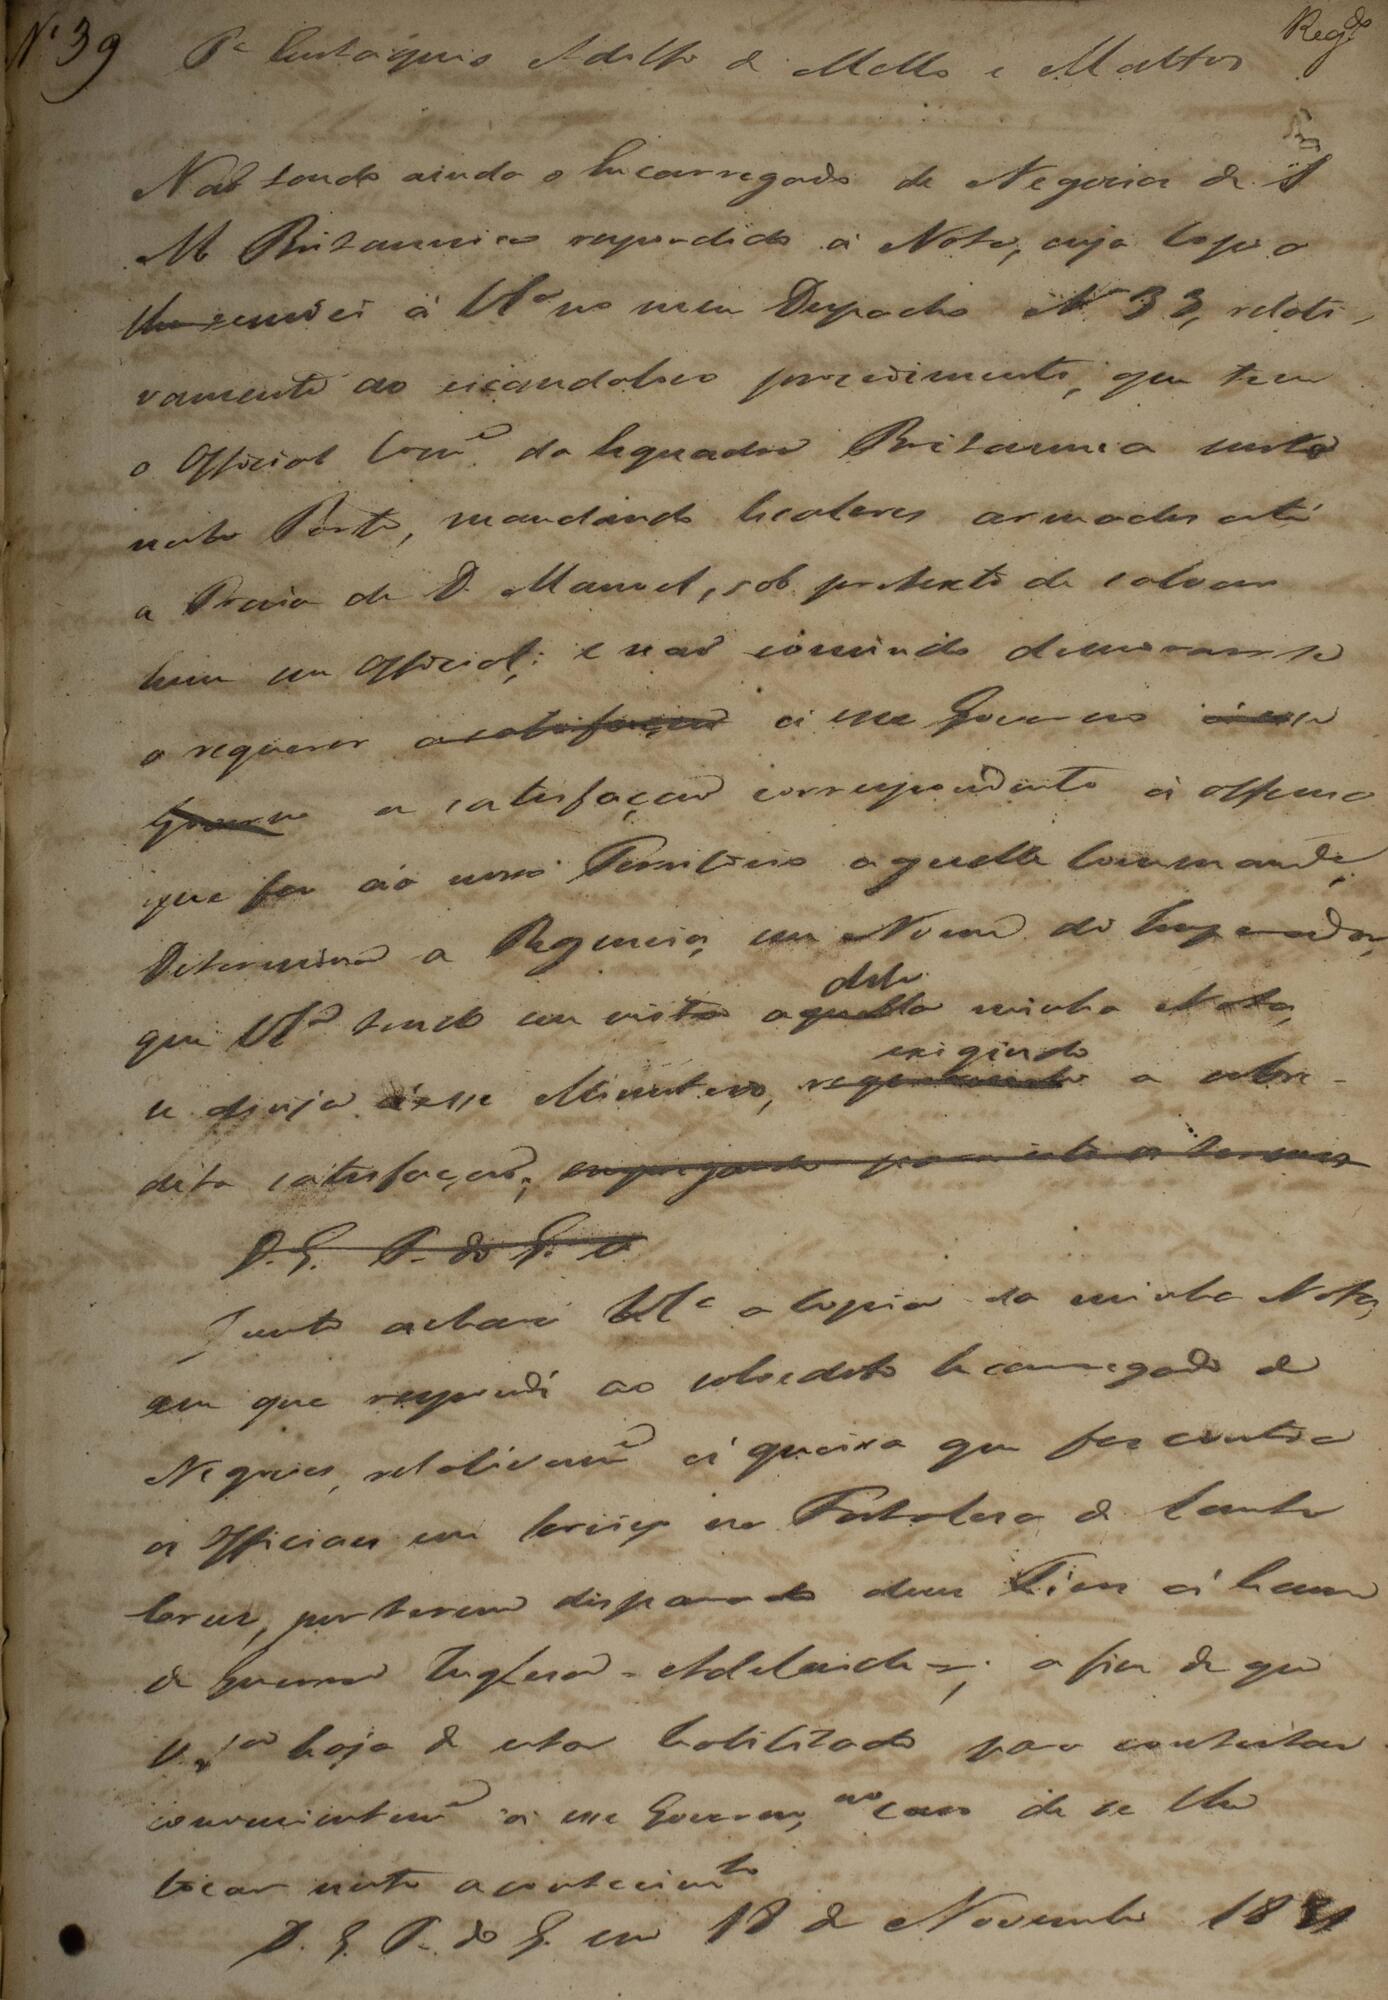 Nº 39 Pª Eustaquio Adolfo de Mello e Mattos Regdo
Não tendo ainda o Encarregado de Negocios de S
M Britannica respondido á Nota, cuja Copia
lhe enviei á VSª no meu Despacho Nº 33, relati-
vamente ao escandoloso procedimento, que tem
o Official Come da Esquadra Britannica
neste Porto, mandando Escaleres armados até
a Praia de D. Manoel, sob pretexto de salvar
hum seu Official; e não convindo demorar-se
o requerer a satisfação á esse Governo á esse
Governo a satisfação correspondente á offensa
que fez ao nosso Territorio aquelle Commande,
Determina a Regencia, em Nome do Imperador,
que VSª tendo em vista aquella desta minha Nota,
se dirija á esse Ministerio, requerendo exigindo a sobre-
dita satisfação; empregando para isto os termos
D. G. P. do G. a
Junto achará VSª a Copia da minha Nota,
em que respondi ao sobredito Encarregado de
Negocios, relativame á queixa que fez contra
os Officiaes em serviço na Fortaleza de Santa
Cruz, por terem disparado dous Tiros á Escuna
de guerra Ingleza - Adelaide -; a fim de que
V. Sª haja de estar habilitado para contestar
conveniente á esse Governo, no caso de se lhe
tocar neste acontecimto
D. G. P. do G. em 18 de Novembro 1831